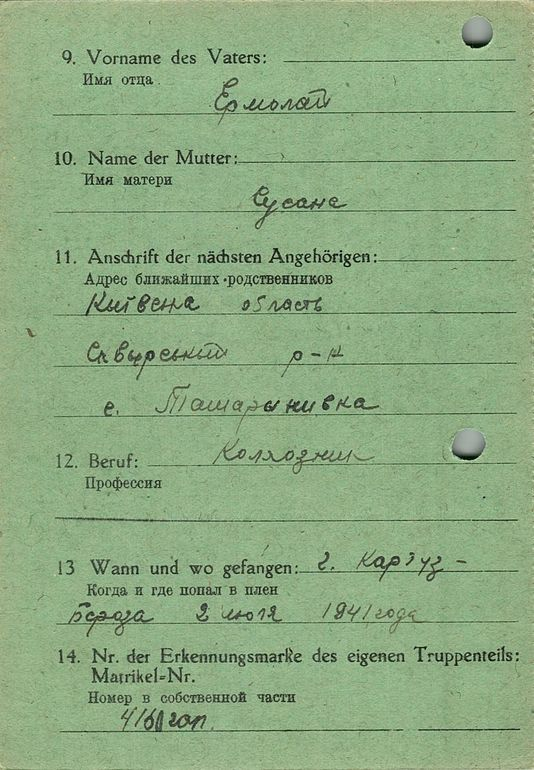 9. Vorname des Vaters:
Имя отца
Ермолай
10. Name der Mutter:
Имя матери
Сусана
11. Anschrift der nächsten Angehörigen:
Адрес ближайших родственников
Київська область
Сквырський р-н
с. Ташаринивка
12. Beruf: Колхозник
Профессия
13 Wann und wo gefangen: г. Картуз-
Когда и где попал в плен
Береза 2 июля 1941 года
14. Nr. der Erkennungsmarke des eigenen Truppenteils:
Matrikel-Nr.
Номер в собственной части